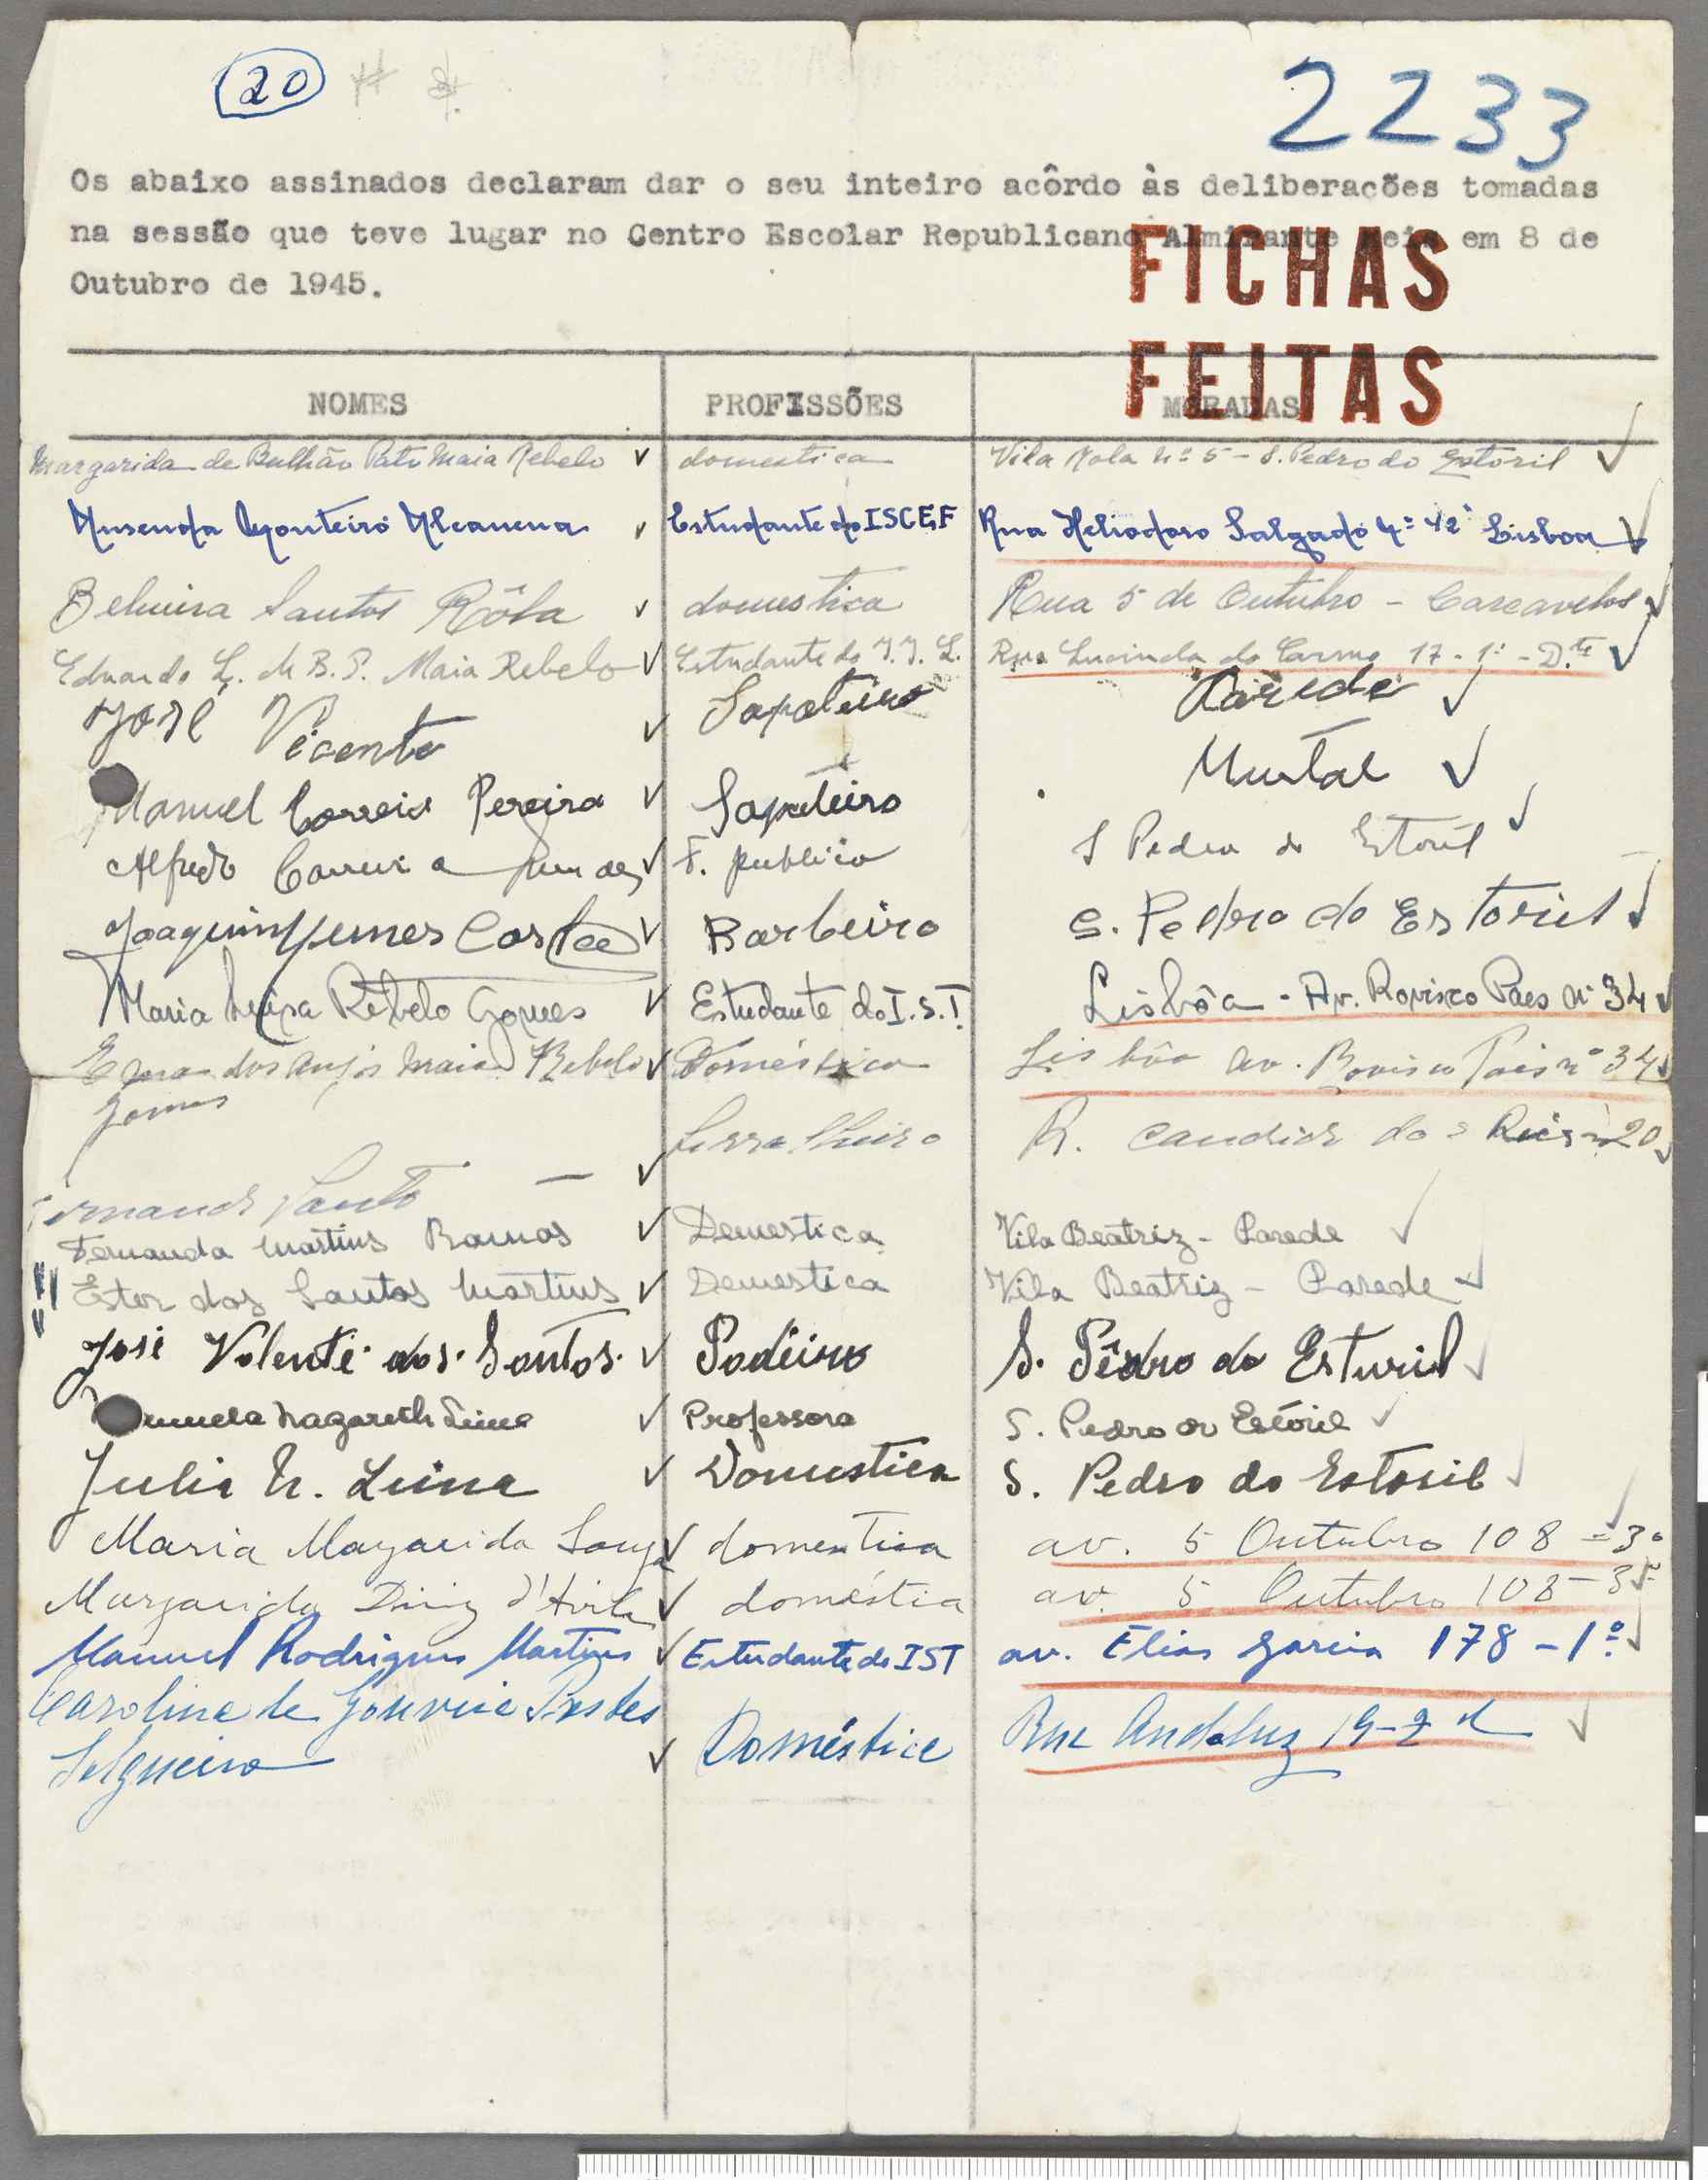 20
2233
Os abaixo assinados declaram dar o seu inteiro acôrdo às deliberacões tomadas
na sessão que teve lugar no Centro Escolar Republicano Almirante Reis em 8 de
Outubro de 1945.
FICHAS
FEITAS
NOMES PROFISSÕES MORADAS
Margarida de Bulhão Pato Maia Rebelo domestica Vila Nola nº 5 - S. Pedro do Estoril
Monteiro Estudante do ISCEF Rua Heliodoro Salgado Lisboa
Belmira Santos Rôla domestica Rua 5 de Outubro - Carcavelos
Eduardo L. M B. P. Maia Rebelo Estudante do I. I. L. Rua Lucinda do Carmo 17-1º - D.te
José Vicente Sapateiro Parede
Manuel Correia Pereira Sapateiro Murtal
Alfredo F. publico S Pedro do Estoril
Joaquim Gomes Costa Barbeiro S. Pedro do Estoril
Maria Luisa Rebelo Gomes Estudante do I.S.T. Lisbôa - Av. Rovisco Paes nº 34
Ema dos Anjos Maia Rebelo Doméstica Lisbôa av. Rovisco Pais nº 34
Gomes
Serralheiro R. Candido dos Reis nº 20
Santo
Fernanda Martins Ramos Demestica Vila Beatriz - Parede
Ester dos Santos Martins Demestica Vila Beatriz - Parede
José Valente dos Santos Padeiro S. Pêdro do Esturil
Nazareth Lima Professora S. Pedro do Estoril
Julia N. Lima Domestica S. Pedro do Estoril
Maria Margarida Souza domestica av. 5 Outubro 108 - 3º
Margarida Diniz d'Avila doméstia av. 5 Outubro 108 - 3º
Manuel Rodrigues Martins Estudante do IST av. Elias Garcia 178 - 1º
Carolina de Gouveia Prestes
Salgueiro Doméstica Rua Andaluz 19-2 d